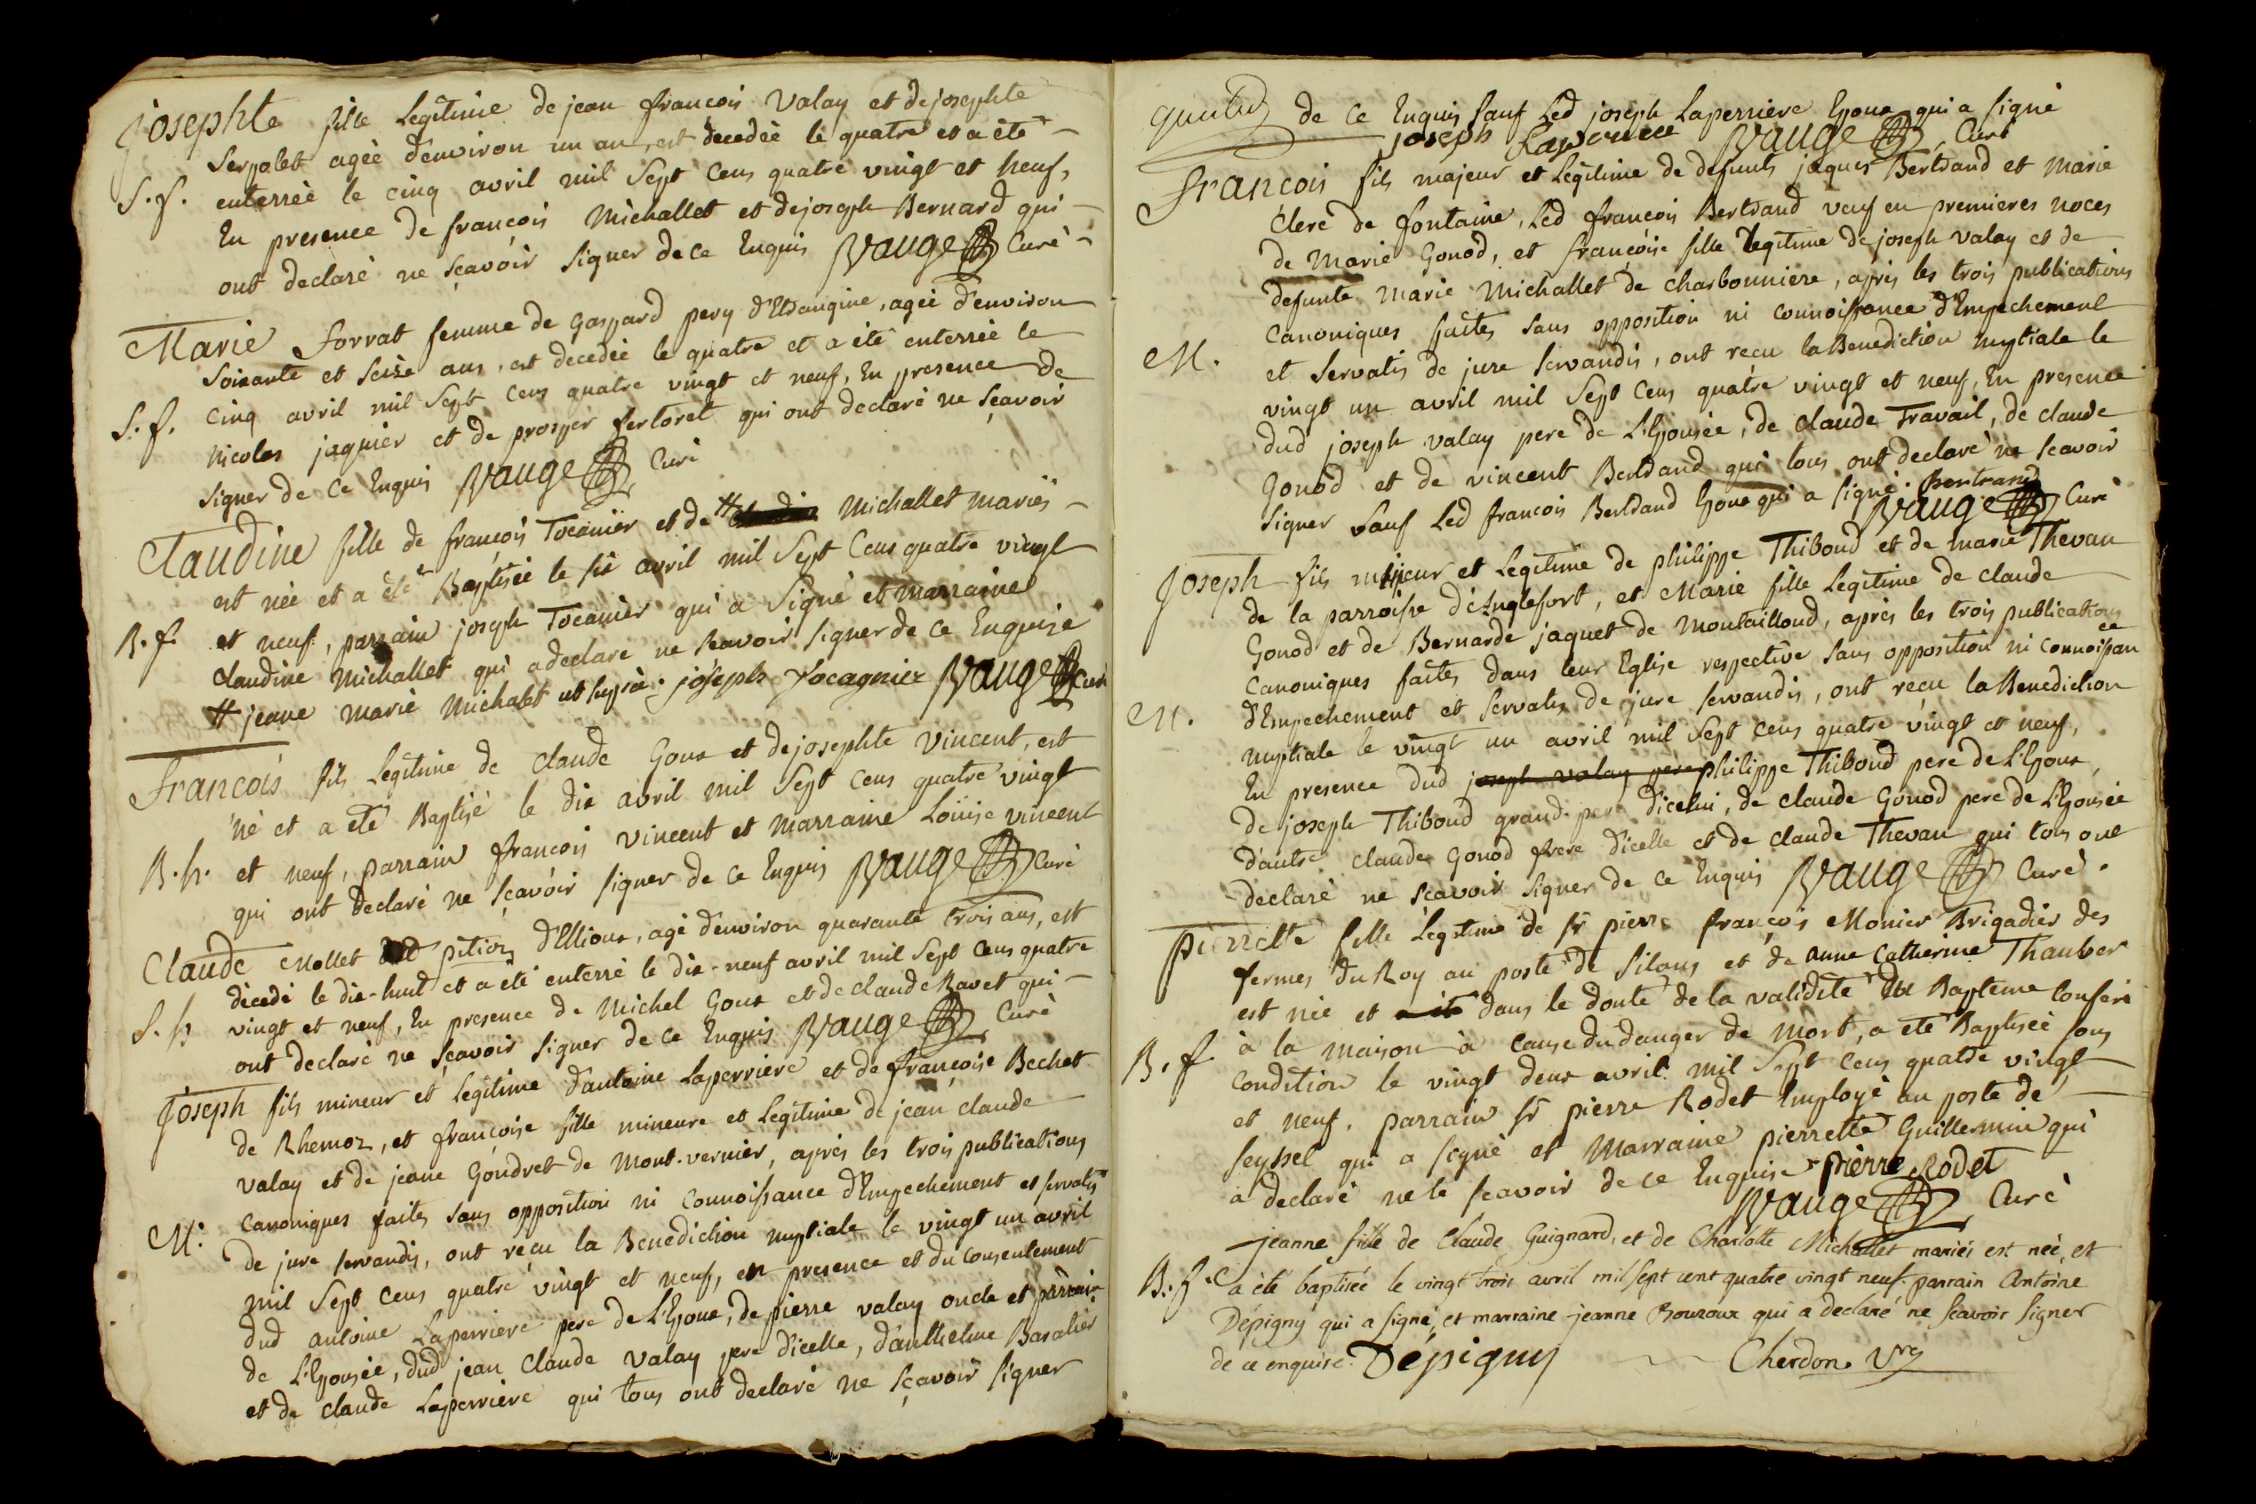 Josephte fille Legitime de jean françois Valay et de josephte
Serpolet agée d'environ un an, est decedée le quatre et a été
S. f. enterrée le cinq avril mil Sept Cens quatre vingt et neuf,
En presence de françois Michallet et de joseph Bernard qui
ont declaré ne sçavoir signer de ce Enquis Vauge Curé
Marie forrat femme de Gaspard pery d'Etrangine, agée d'environ
Soixante et seize ans, est decedée le quatre et a été enterrée le
S. f. Cinq avril mil Sept Cens quatre vingt et neuf, En presence de
Nicolas jaquier et de prosper fertoret qui ont declaré ne sçavoir
signer de Ce Enquis Vauge Curé
Claudine fille de françois Tocanier et de # Michallet mariés
est née et a été Baptisée le six avril mil Sept Cens quatre vingt
B. f. et neuf, parrain joseph Tocanier qui a Signé et marraine
Claudine Michallet qui a declare ne scavoir signer de Ce Enquise
# jeane Marie Michalet ut supra. joseph Tocagnier Vauge Curé
françois fils Legitime de Claude Goux et de josephte Vincent, est
né et a été Baptisé le dix avril mil Sept Cens quatre vingt
B. h. et neuf, parrain françois Vincent et Marraine Loüise vincent
qui ont declaré ne sçavoir signer de Ce Enquis Vauge Curé
Claude Mollet pition d'Ellioux, agé d'environ quarante trois ans, est
décedé le dix-huit et a été enterré le dix-neuf avril mil Sept Cens quatre
S. h vingt et neuf, En presence de Michel Goux et de Claude Ravet qui
ont declaré ne sçavoir signer de Ce Enquis Vauge Curé
Joseph fils mineur et Legitime d'antoine Laperriere et de françoise Bechet
de Rhemoz, et françoise fille mineure et Legitime de jean Claude
valay et de jeane Goudret de Mont-vernier, après les trois publications
M. Canoniques faites sans opposition ni Connoissance d'Empechement et servatis
de jure servandis, ont reçu la Benediction nuptiale le vingt un avril
mil Sept Cens quatre vingt et neuf, en presence et du Consentement
dud antoine Laperriere pere de L'Epoux, de pierre valay oncle et parrain
de L'Epousée, dud jean Claude valay pere d'icelle, d'anthelme Baralier
et de Claude Laperriere qui tous ont declaré ne sçavoir signer
de Ce Enquis sauf Led joseph Laperriere Epoux qui a signé
joseph Laperriere Vauge Curé
françois fils majeur et Legitime de defunts jaques Bertrand et Marie
Clerc de fontaine, Led françois Bertrand veuf en premieres noces
de Marie Gonod, et françoise fille Legitime de joseph valay et de
defunte Marie Michallet de Charbonniere, après les trois publications
Canoniques faites sans opposition ni connoissance d'Empechement
M. et servatis de jure servandis, ont recu la Benediction nuptiale le
vingt un avril mil Sept Cens quatre vingt et neuf, En presence
dud joseph valay pere de L'Epousée, de Claude Travail, de claude
Gonod et de vincent Bertrand qui tous ont declaré ne scavoir
signer sauf Led francois Bertrand Epoux qui a signé. Bertrand
Vauge Curé
Joseph fils majeur et Legitime de philippe Thiboud et de marie Thevan
de la parroisse d'Anglefort, et Marie fille Legitime de claude
Gonod et de Bernarde jaquet de Montailloud, après les trois publications
Canoniques faites dans leur Eglise respective sans opposition ni connoissance
M. d'Empechement et servatis de jure servandis, ont recu la Benediction
nuptiale le vingt un avril mil Sept Cens quatre vingt et neuf,
En presence dud joseph valay pere philippe Thiboud pere de L'Epoux,
de joseph Thiboud grand-pere d'icelui, de claude Gonod pere de L'Epousée
d'autre Claude Gonod frere d'icelle et de claude Thevan qui tous ont
declaré ne sçavoir signer de Ce Enquis Vauge Curé.
Pierrette fille Legitime de sr pierre françois Monier Brigadier des
fermes du Roy au poste de Silans et de anne Catherine Thauber
est née et a été dans le doute de la validité du Bapteme Conferé
B. f à la Maison à Cause du danger de mort, a été Baptisée sous
Condition le vingt deux avril mil Sept Cens quatre vingt
et neuf. parrain sr pierre Rodet Employé au poste de
Seyssel qui a signé et Marraine pierrette Guillermin qui
a declaré ne le scavoir de ce Enquise pierre Rodet
Vauge Curé
Jeanne fille de Claude Guignard, et de Charlotte Michallet mariés est née, et
B. f. a été baptisée le vingt trois avril mil sept cent quatre vingt neuf. parrain Antoine
Dépigny qui a signé, et marraine jeanne Bouzoux qui a declaré ne sçavoir signer
de ce enquise. Dépigny Cherdon Vre